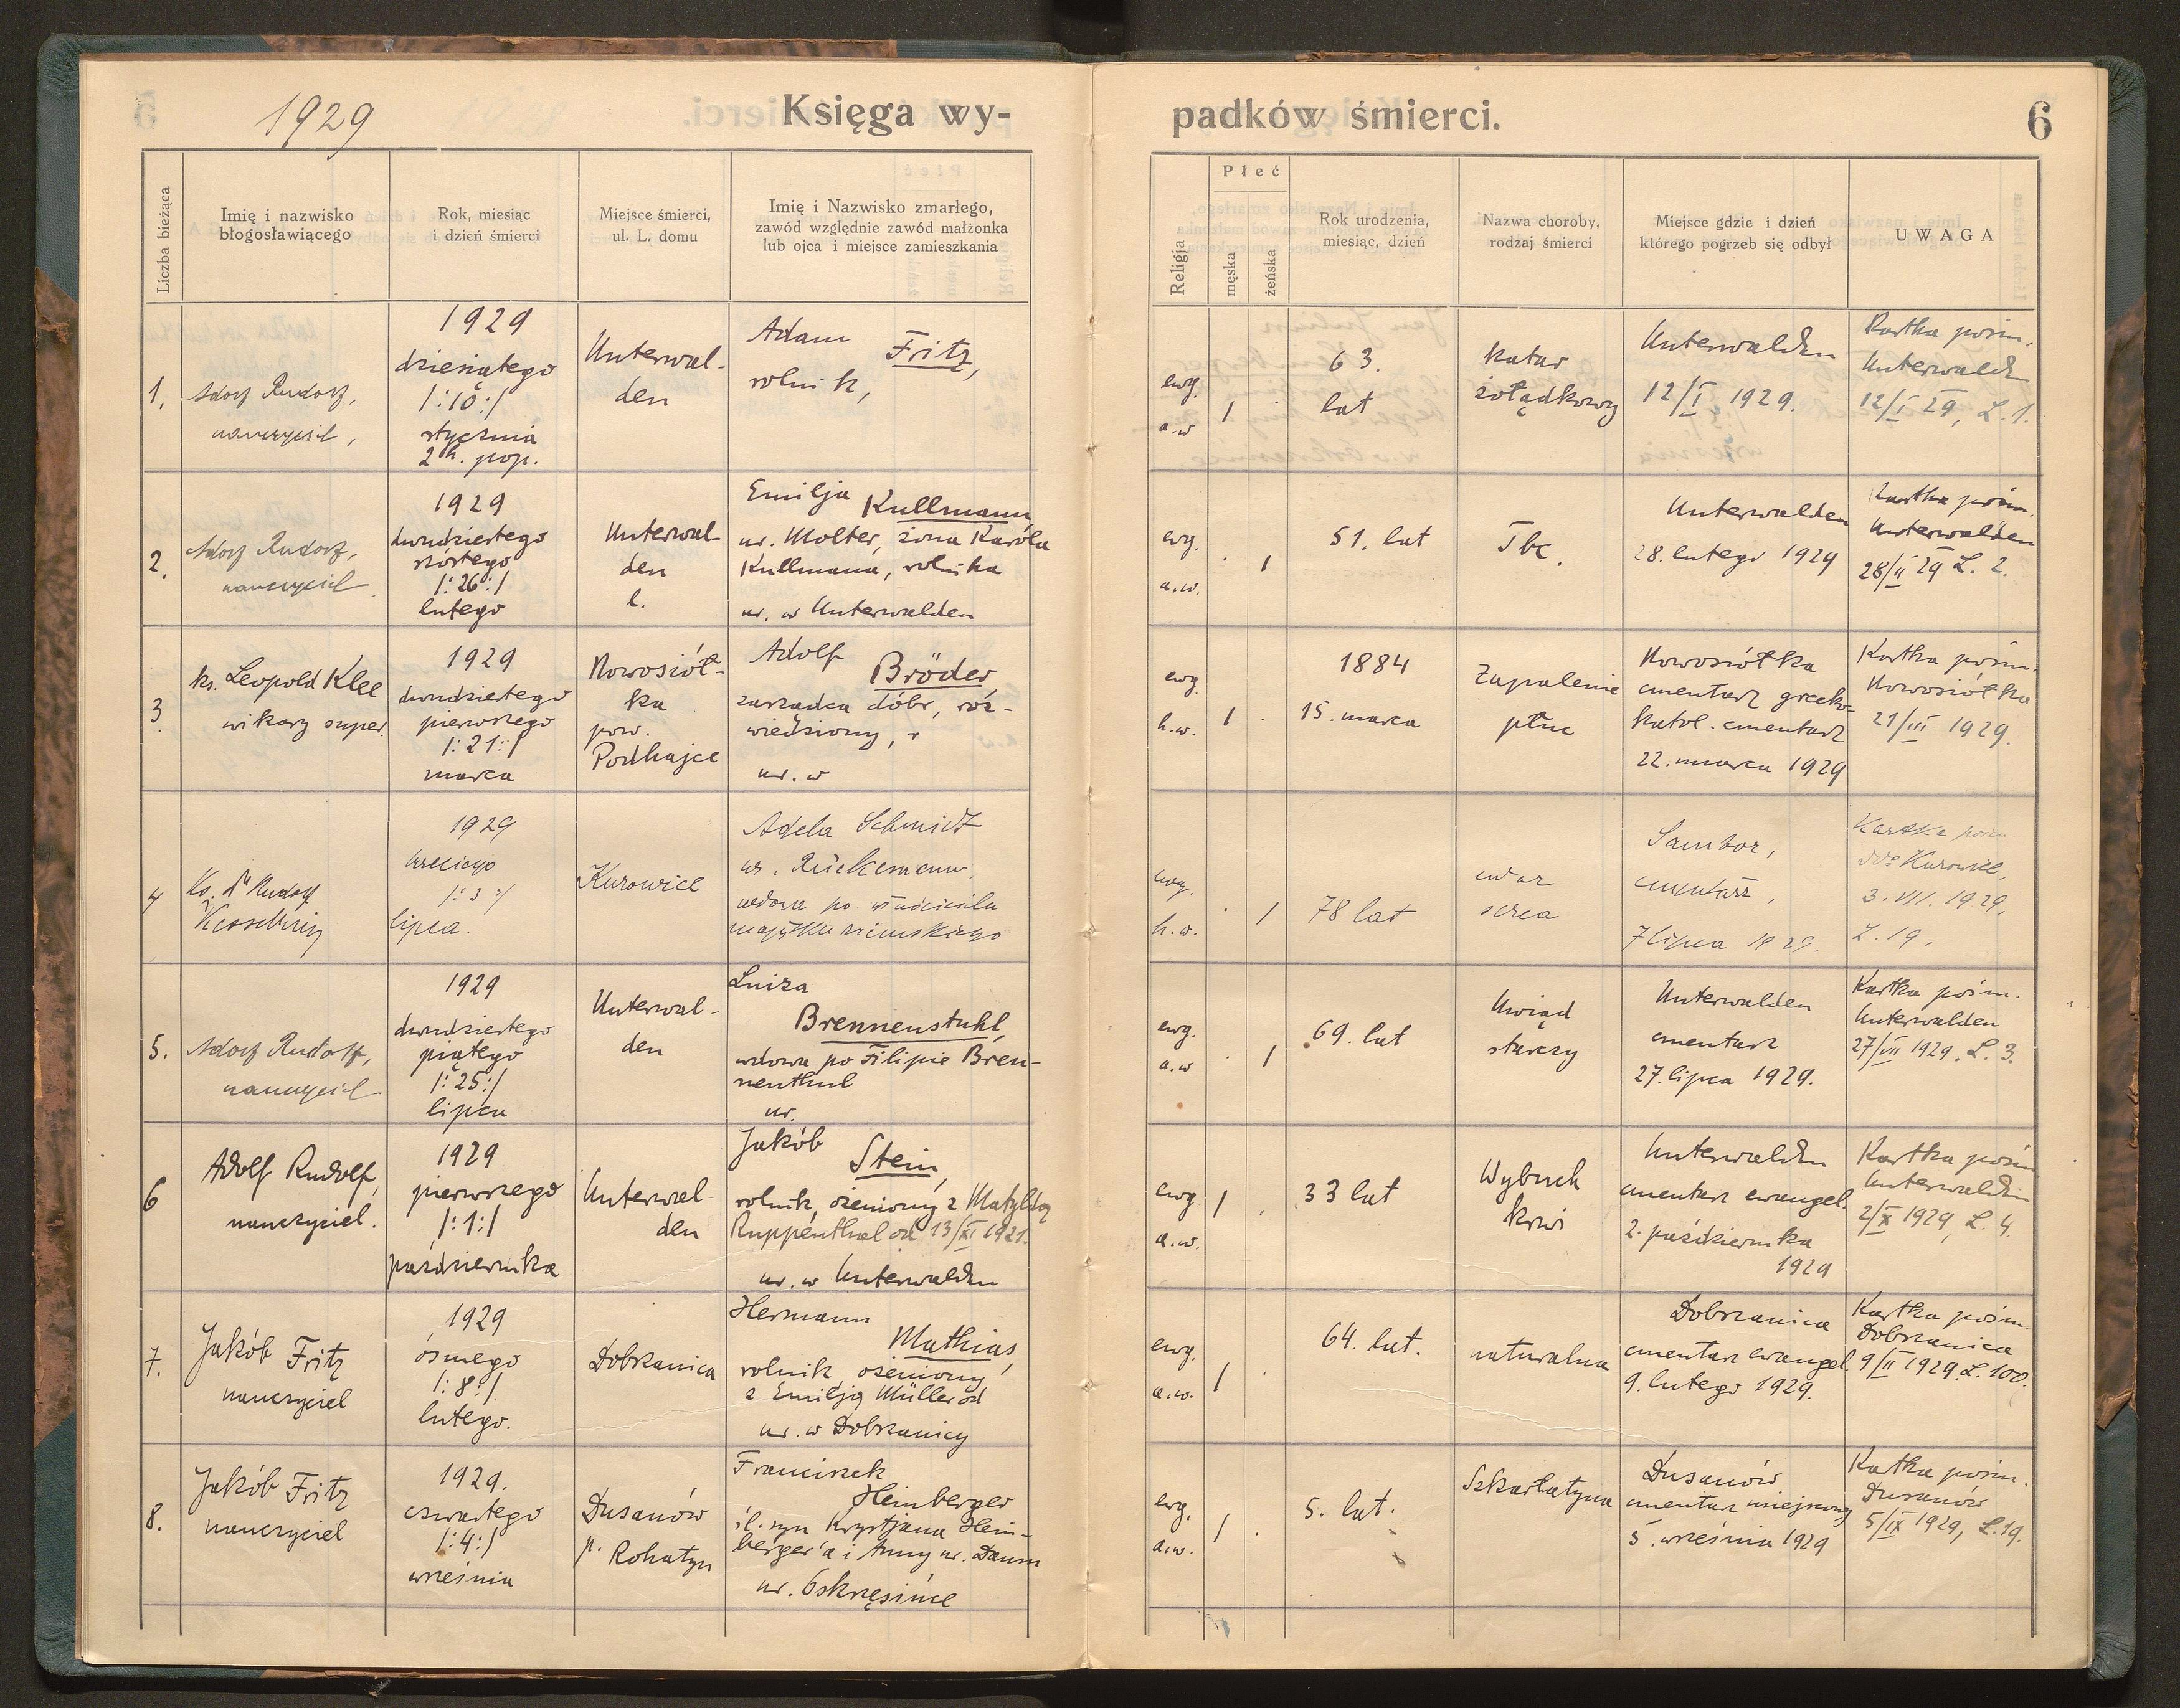 1929
Księga wy-
padków śmierci.
6
Liczba bieżąca
Imię i nazwisko
błogosławiącego
Rok, miesiąc
i dzień śmierci
Miejsce śmierci,
ul. L. domu
Imię i Nazwisko zmarłego,
zawód względnie zawód małżonka
lub ojca i miejsce zamieszkania
Religja
Płeć
męska
żeńska
Rok urodzenia,
miesiąc, dzień
Nazwa choroby,
rodzaj śmierci
Miejsce gdzie i dzień
którego pogrzeb się odbył
UWAGA
1.
Adolf Rudolf,
nauczyciel,
1929
dziesiątego
/:10:/
stycznia
2 h. pop.
Unterwal-
den
Adam
Fritz,
rolnik,
ewg.
a.w
1
63.
lat
katar
żołądkowy
Unterwalden
12/I 1929.
Kartka pośm.
Unterwalden
12/I 29, L. 1.
2.
Adolf Rudolf,
nauczyciel
1929
dwudziestego
szóstego
/:26:/
lutego
Unterwal-
den
l.
Emilja Kullmann
ur. Molter, żona Karóla
Kullmana, rolnika
ur. w Unterwalden
ewg.
a.w.
1
51. lat
Tbc.
Unterwalden
28. lutego 1929
Kartka pośm.
Unterwalden
28/II 29 L. 2.
3
ks. Leopold Klee
wikary super.
1929
dwudziestego
pierwszego
/:21:/
marca
Nowosiół-
ka
pow.
Podhajce
Adolf
Bröder
zarządca dóbr, roz-
wiedziony,
ur. w
ewg.
h.w.
1
1884
15. marca
Zapalenie
płuc
Nowosiółka
cmentarz grecko-
katol. cmentarz
22. marca 1929
Kartka pośm.
Nowosiółka
21/III 1929.
4
Ks. dr Rudolf
Kesselring
1929
trzeciego
/:3:/
lipca.
Kurowice
Adela Schmidt
ur. Rückemann,
wdowa po właścicielu
majątku ziemskiego
ewg.
h.w.
1
78 lat
udar
serca
Sambor,
cmentarz,
7 lipca 1929.
Kartka pośm
Kurowice,
3. VII. 1929,
L. 19.
5.
Adolf Rudolf,
nauczyciel
1929
dwudziestego
piątego
/:25:/
lipca
Unterwal-
den
Luiza
Brennenstuhl,
wdowa po Filipie Bren-
nenthul
ur.
ewg.
a.w
1
69. lat
Uwiąd
starczy
Unterwalden
cmentarz
27. lipca 1929.
Kartka pośm.
Unterwalden
27/VII 1929, L. 3.
6
Adolf Rudolf,
nauczyciel.
1929
pierwszego
/:1:/
października
Unterwal-
den
Jakób
Stein,
rolnik, ożeniony z Matyldą
Ruppenthal od 13/XI 1921.
ur. w Unterwalden
ewg
a.w.
1
33 lat
Wybuch
krwi
Unterwalden
cmentarz ewangel.
2. października
1929
Kartka pośm
Unterwalden
2/X 1929, L. 4.
7.
Jakób Fritz
nauczyciel
1929
ósmego
/:8:/
lutego.
Dobrzanica
Hermann
Mathias,
rolnik ożeniony
z Emilją Müller od
ur. w Dobrzanicy
ewg.
a.w.
1
64. lat.
naturalna
Dobrzanica
cmentarz ewangel.
9. lutego 1929.
Kartka pośm.
Dobrzanica
9/II 1929. L. 100.
8.
Jakób Fritz
nauczyciel
1929.
czwartego
/:4:/
września
Dusanów
p. Rohatyn
Franciszek
Heinberger
śl. syn Krystjana Hein-
berger'a i Anny ur. Daum
ur. Oskrzesińce
ewg.
a.w.
1
5. lat.
Szkarlatyna
Dusanów
cmentarz miejscowy
5. września 1929
Kartka pośm.
Dusanów
5/IX 1929, L. 19.